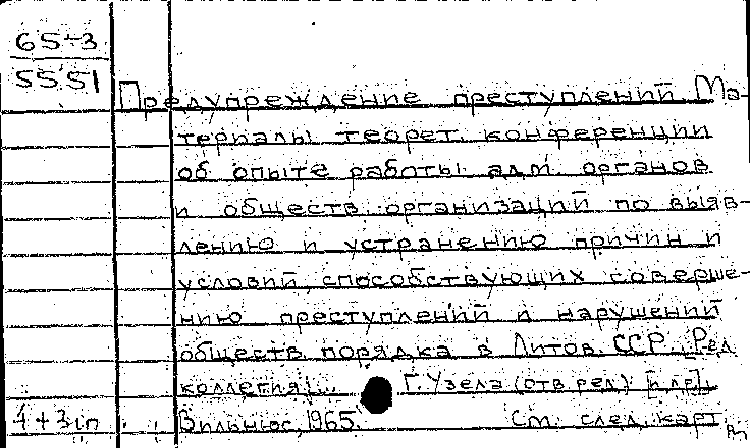 65-3
5551
Предупреждение преступлений. Ма-
териалы теорет. конференции
об опыте работы адм. органов
и обществ. организаций по выяв-
лению и устранению причин и
условий, способствующих соверше-
нию преступлений и нарушений
обществ. порядка в Литов. ССР. Ред.
коллегия: Г. Узела (отв. ред.) [и др.].
Вильнюс, 1965.
См. след. карт.